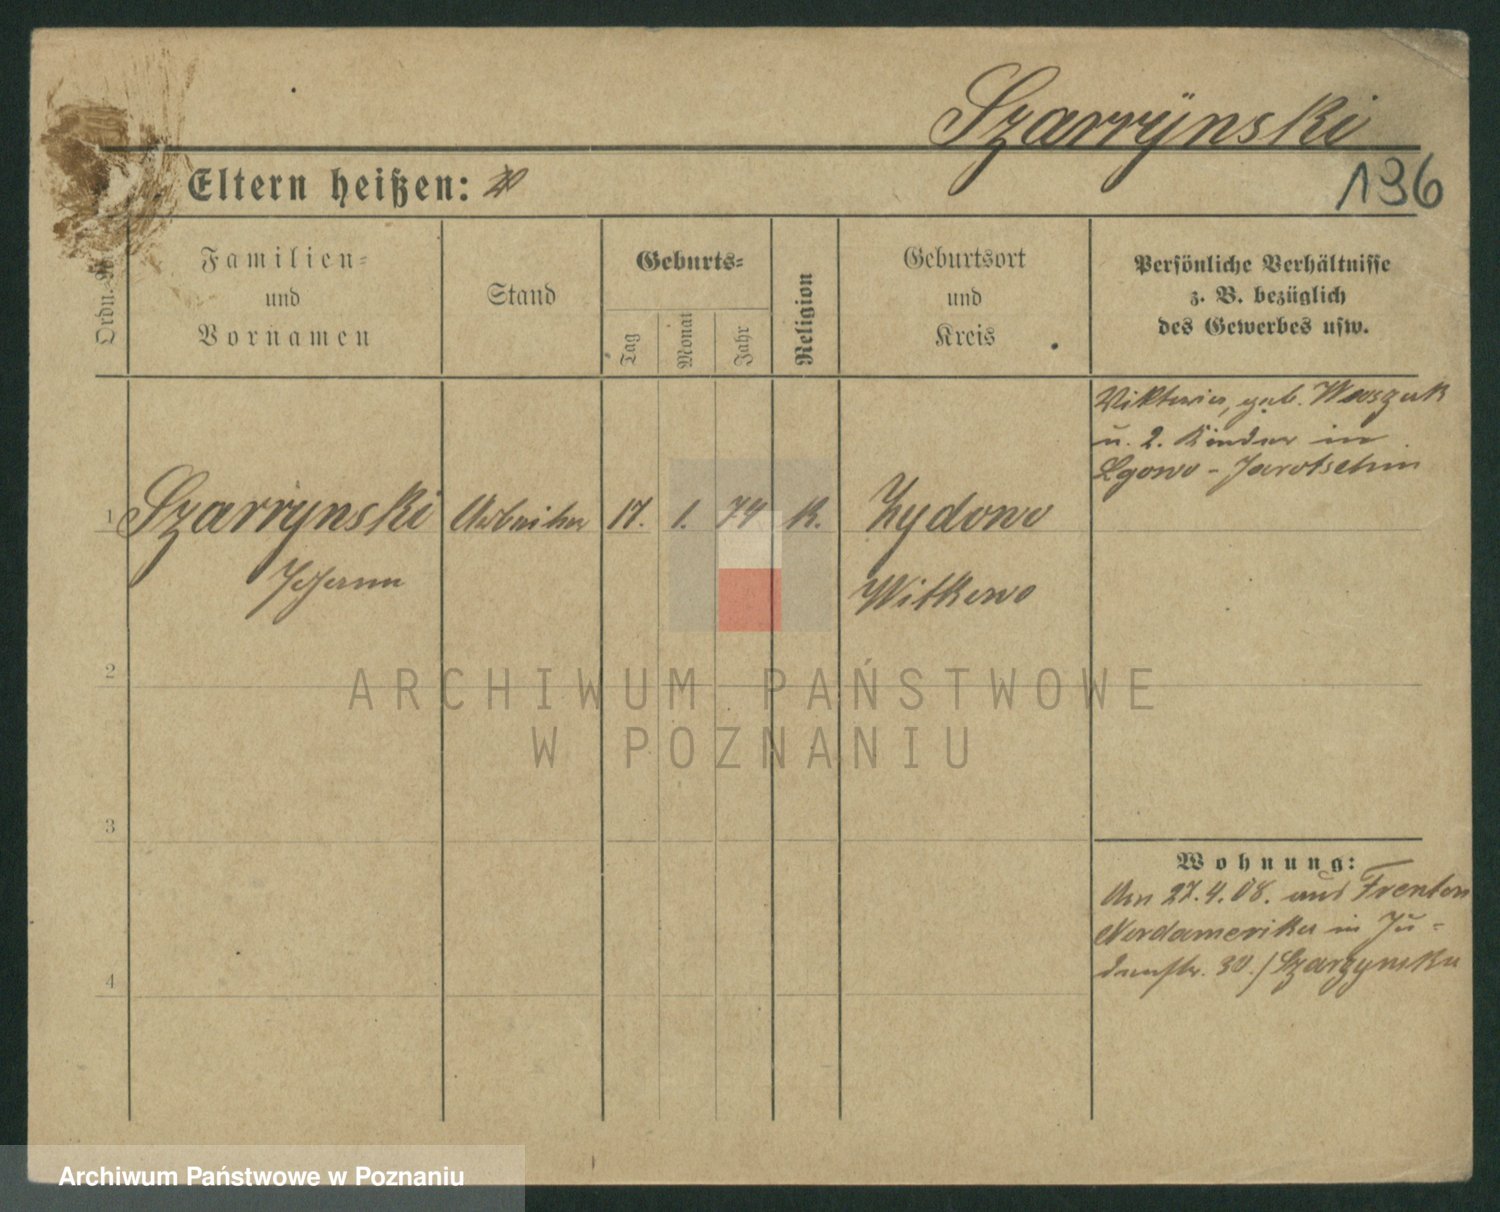 Szarrÿnski
136
Eltern heißen:
Ordn.-Nr.
Familien- und Vornamen
Stand
Geburts-
Tag
Monat
Jahr
Religion
Geburtsort und Kreis
Persönliche Verhältnisse
z. B. bezüglich
des Gewerbes usw.
Viktoria, geb. Waszak
u. 2. Kinder in
Lgowo - Jarotschin
1 Szarrynski Arbeiter 17. 1. 74 K. Zydowo
Johann Witkowo
2
3
4
Wohnung:
Am 27.4.08. aus Trenton
Nordamerika in Ju-
denstr. 30./Szarzynska
ARCHIWUM PAŃSTWOWE
W POZNANIU
Archiwum Państwowe w Poznaniu